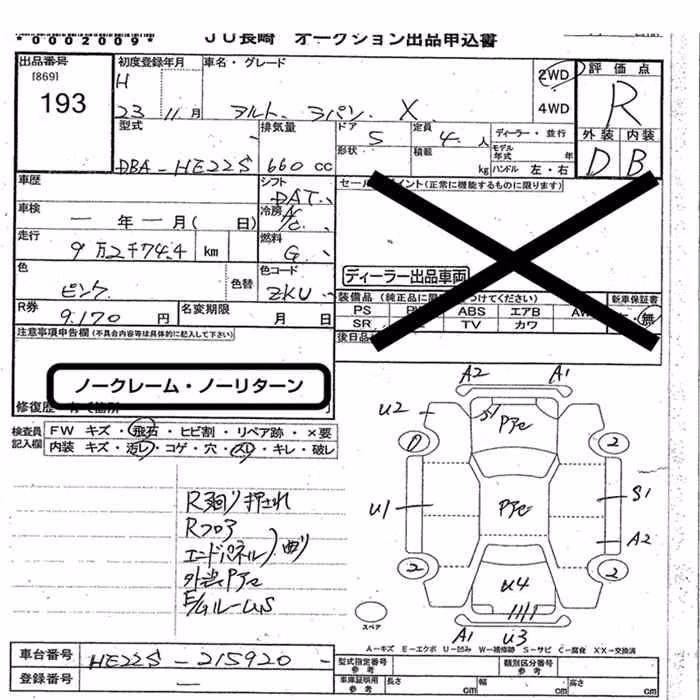 *0002009*
JU長崎 オークション出品申込書
出品番号 初度登録年月 車名・グレード 2WD 評価点
[869] H 4WD R
193 23 11月 アルト ラパン X 外装 内装
型式 排気量 ドア 5 定員 4人 ディーラー・並行 D B
DBA-HE22S 660cc 形状 積載 kg モデル年式 年
ハンドル 左・右
車歴 シフト セールスポイント(正常に機能するものに限ります)
DAT
車検 一年一月( 日) 冷房 A/C
走行 9万2千744 km 燃料 G
ディーラー出品車両
色 ピンク 色替 色コード ZKU
装備品 新車保証書
R券 9,170円 名変期限 月 日 PS ABS エアB 無
SR TV カワ
注意事項申告欄(不具合内容等は具体的に記入して下さい) 後日品
ノークレーム・ノーリターン
修復歴
検査員記入欄 FW キズ・飛石・ヒビ割・リペア跡・×要
内装 キズ・汚レ・コゲ・穴・スレ・キレ・破レ
A2 A1
U2 S1
2
U1 S1
A2
2 2
U4
A1 U3
R廻り押され
Rフロア
エンドパネル)曲り
E/GルームS
スペア
A-キズ E-エクボ U-凹み W-補修跡 S-サビ C-腐食 XX-交換済
車台番号 HE22S-215920-
型式指定番号 参考 類別区分番号 参考
登録番号 —
車庫証明用 参考 長さ cm 幅 cm 高さ cm